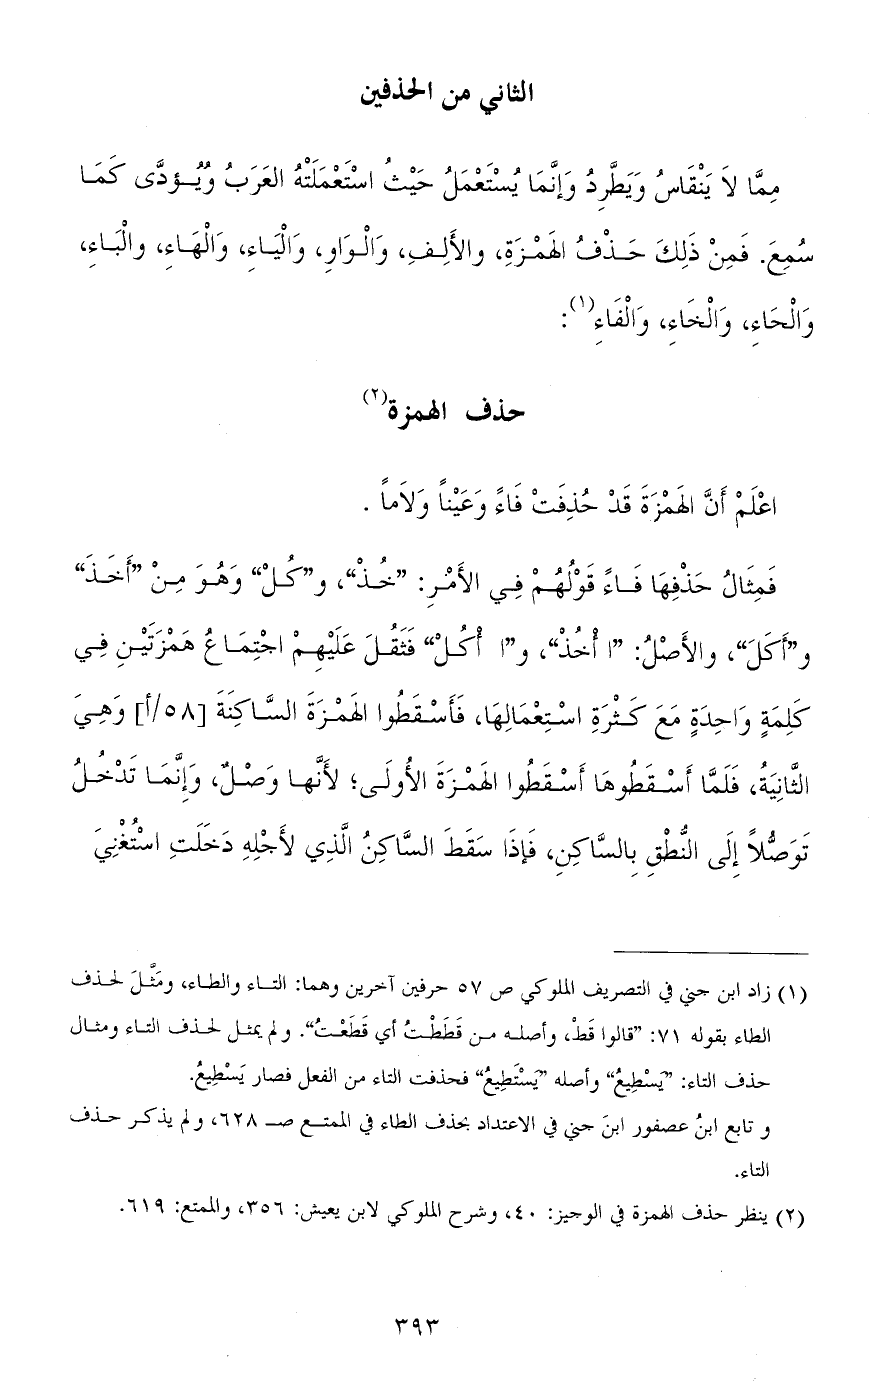 الثاني من الحذفين
مِمَّا لاَ يَنْقَاسُ وَيَطَّرِدُ وَإِنَّمَا يُسْتَعْمَلُ حَيْثُ اسْتَعْمَلَتْهُ العَرَبُ وَيُؤدَّى كَمَا
سُمِعَ. فَمِنْ ذَلِكَ حَذْفُ الهَمْزَةِ، والأَلِفِ، وَالْوَاوِ، وَالْيَاءِ، وَالْهَاءِ، والْبَاءِ،
وَالْحَاءِ، وَالْخَاءِ، وَالْفَاءِ(١):
حذف الهمزة(٢)
اعْلَمْ أَنَّ الهَمْزَةَ قَدْ حُذِفَتْ فَاءً وَعَيْناً وَلاَماً .
فَمِثَالُ حَذْفِهَا فَاءً قَوْلُهُمْ فِي الأَمْرِ: ”خُذْ“، و”كُلْ“ وَهُوَ مِنْ ”أَخَذَ“
و”أَكَلَ“، والأَصْلُ: ”ا أْخُذْ“، و”ا أْكُلْ“ فَثَقُلَ عَلَيْهِمْ اجْتِمَاعُ هَمْزَتَيْنِ فِي
كَلِمَةٍ وَاحِدَةٍ مَعَ كَثْرَةِ اسْتِعْمَالِهَا، فَأَسْقَطُوا الهَمْزَةَ السَّاكِنَةَ [٥٨/أ] وَهِيَ
الثَّانِيَةُ، فَلَمَّا أَسْقَطُوهَا أَسْقَطُوا الهَمْزَةَ الأُولَى؛ لأَنَّها وَصْلٌ، وَإِنَّمَا تَدْخُلُ
تَوَصُّلاً إِلَى النُّطْقِ بِالسَّاكِنِ، فَإِذَا سَقَطَ السَّاكِنُ الَّذِي لأَجْلِهِ دَخَلَتِ اسْتُغْنِيَ
(١) زاد ابن جني في التصريف الملوكي ص ٥٧ حرفين آخرين وهما: التاء والطاء، ومَثَّلَ لحذف
الطاء بقوله ٧١: ”قالوا قَطْ، وأصله من قَطَطْتُ أي قَطَعْتُ“. ولم يمثل لحذف التاء ومثال
حذف التاء: ”يَسْطِيعُ“ وأصله ”يَسْتَطِيعُ“ فحذفت التاء من الفعل فصار يَسْطِيعُ.
و تابع ابنُ عصفور ابنَ جني في الاعتداد بحذف الطاء في الممتع صـ ٦٢٨، ولم يذكر حذف
التاء.
(٢) ينظر حذف الهمزة في الوجيز: ٤٠، وشرح الملوكي لابن يعيش: ٣٥٦، والممتع: ٦١٩.
٣٩٣